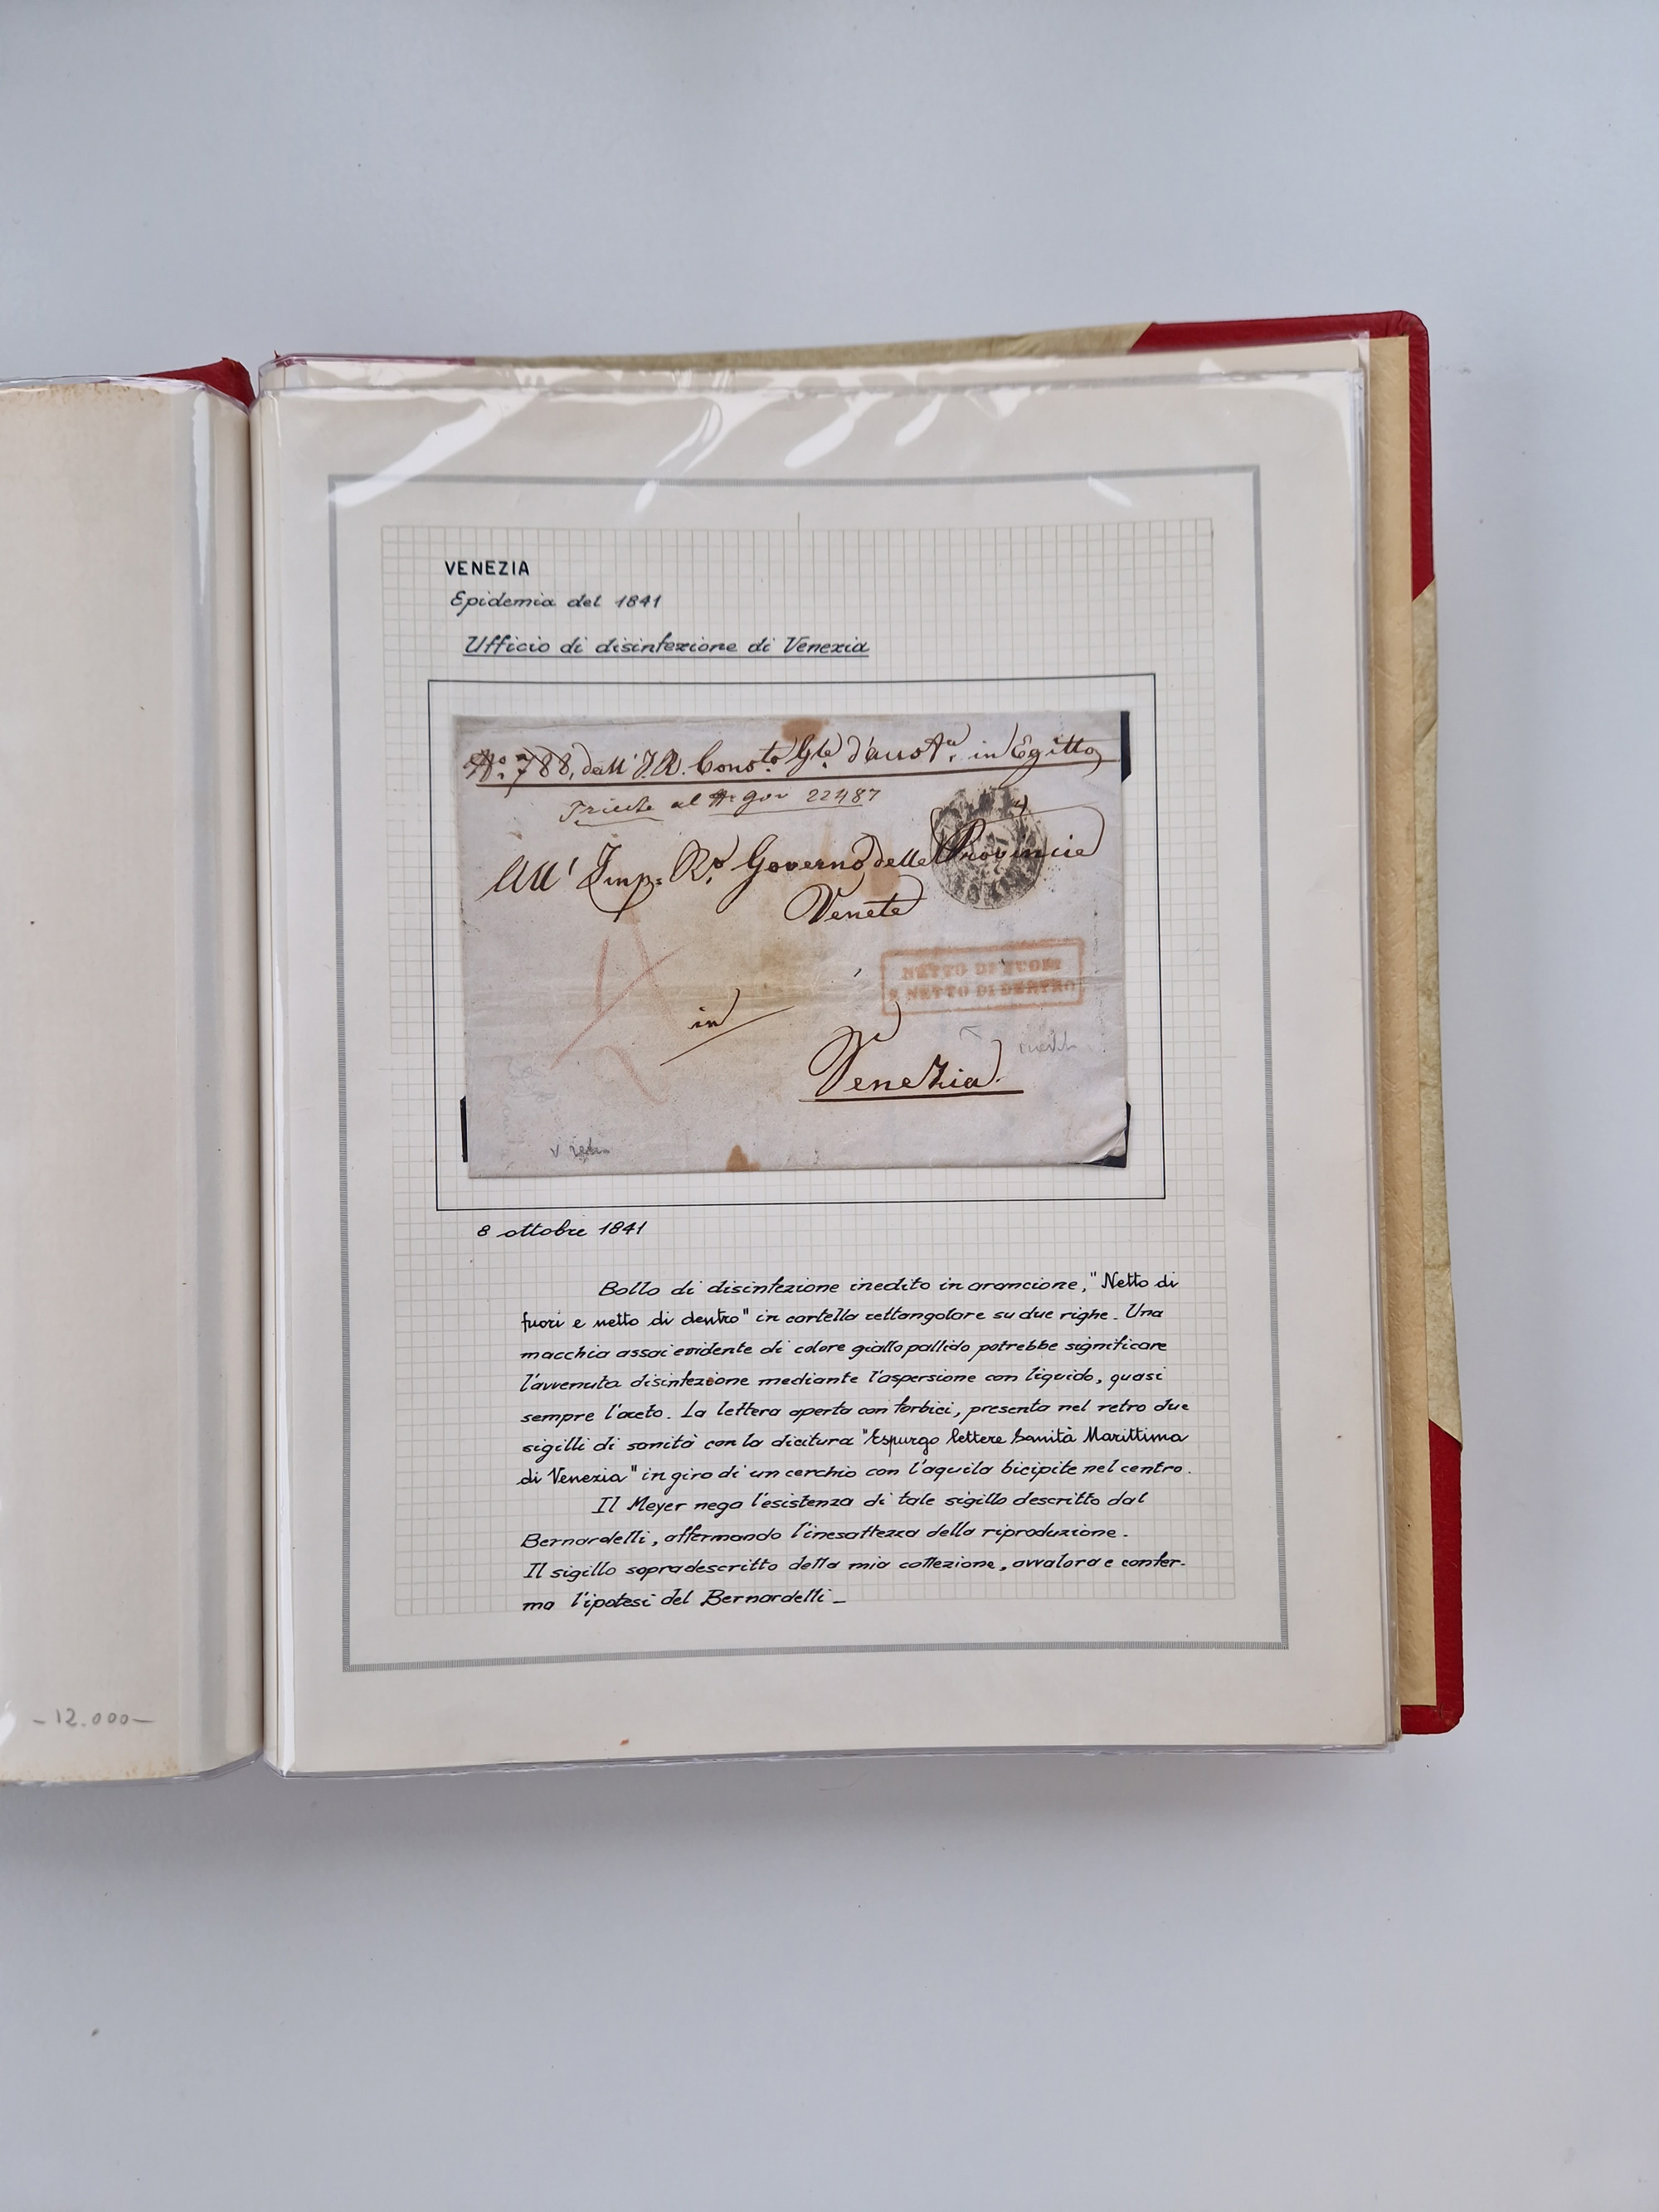 VENEZIA
Epidemia del 1841
Ufficio di disinfezione di Venezia
N.o 788, dall' I.R. Cons.to G.le d'Aust.a in Egitto
Trieste al gov 22487
All' Imp. R.o Governo delle Provincie
Venete
NETTO DI FUORI
E NETTO DI DENTRO
in
Venezia.
8 ottobre 1841
Bollo di disinfezione inedito in arancione, "Netto di
fuori e netto di dentro" in cartella rettangolare su due righe. Una
macchia assai evidente di colore giallo pallido potrebbe significare
l'avvenuta disinfezione mediante l'aspersione con liquido, quasi
sempre l'aceto. La lettera aperta con forbici, presenta nel retro due
sigilli di sanità con la dicitura "Espurgo lettere Sanità Marittima
di Venezia" in giro di un cerchio con l'aquila bicipite nel centro.
Il Meyer nega l'esistenza di tale sigillo descritto dal
Bernardelli, affermando l'inesattezza della riproduzione.
Il sigillo sopradescritto della mia collezione, avvalora e confer-
ma l'ipotesi del Bernardelli_
-12.000-